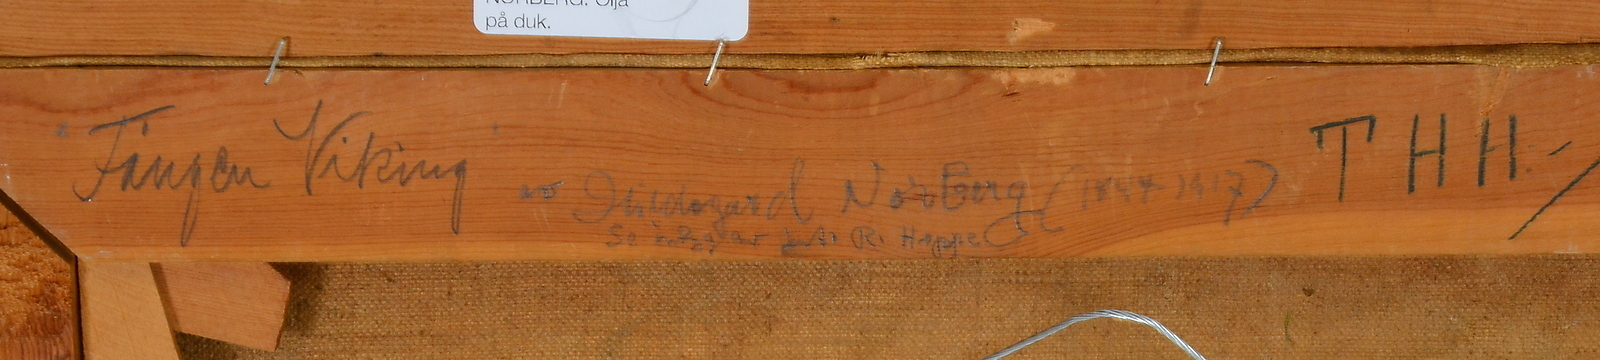 NORBERG. Olja
på duk.
"Fången Viking"
av Hildegard Norberg (1844-1917)
Se av R. Hoppe
THH:-